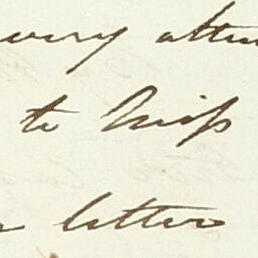 very atten
to Miss
letter